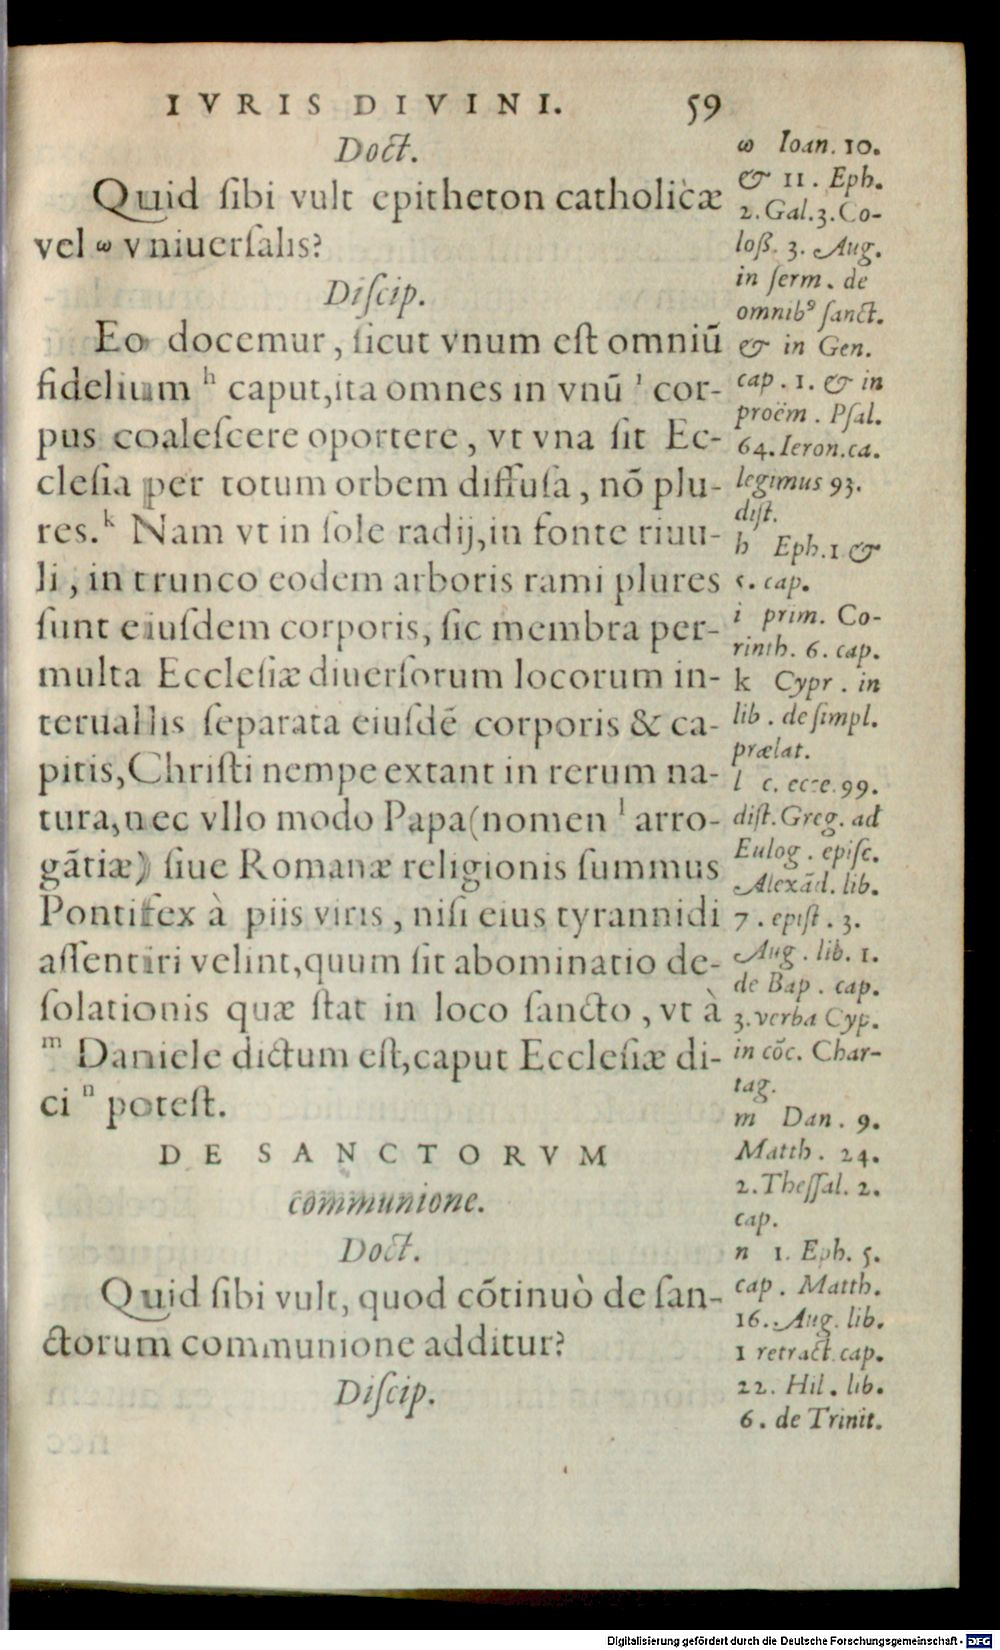 IVRIS DIVINI. 59
Doct.
Quid sibi vult epitheton catholicæ
vel ω vniuersalis?
Discip.
Eo docemur, sicut vnum est omniū
fidelium h caput, ita omnes in vnū i cor-
pus coalescere oportere, vt vna sit Ec-
clesia per totum orbem diffusa, nō plu-
res. k Nam vt in sole radij, in fonte riuu-
li, in trunco eodem arboris rami plures
sunt eiusdem corporis, sic membra per-
multa Ecclesiæ diuersorum locorum in-
teruallis separata eiusdē corporis & ca-
pitis, Christi nempe extant in rerum na-
tura, nec vllo modo Papa (nomen l arro-
gātiæ) siue Romanæ religionis summus
Pontifex à piis viris, nisi eius tyrannidi
assentiri velint, quum sit abominatio de-
solationis quæ stat in loco sancto, vt à
m Daniele dictum est, caput Ecclesiæ di-
ci n potest.
DE SANCTORVM
communione.
Doct.
Quid sibi vult, quod cōtinuò de san-
ctorum communione additur?
Discip.
ω Ioan. 10.
& 11. Eph.
2. Gal. 3. Co-
loß. 3. Aug.
in serm. de
omnib⁹ sanct.
& in Gen.
cap. 1. & in
proëm. Psal.
64. Ieron. ca.
legimus 93.
dist.
h Eph. 1 &
5. cap.
i prim. Co-
rinth. 6. cap.
k Cypr. in
lib. de simpl.
prælat.
l c. ecce. 99.
dist. Greg. ad
Eulog. episc.
Alexād. lib.
7. epist. 3.
Aug. lib. 1.
de Bap. cap.
3. verba Cyp.
in cōc. Char-
tag.
m Dan. 9.
Matth. 24.
2. Thessal. 2.
cap.
n 1. Eph. 5.
cap. Matth.
16. Aug. lib.
1 retract. cap.
22. Hil. lib.
6. de Trinit.
Digitalisierung gefördert durch die Deutsche Forschungsgemeinschaft - DFG